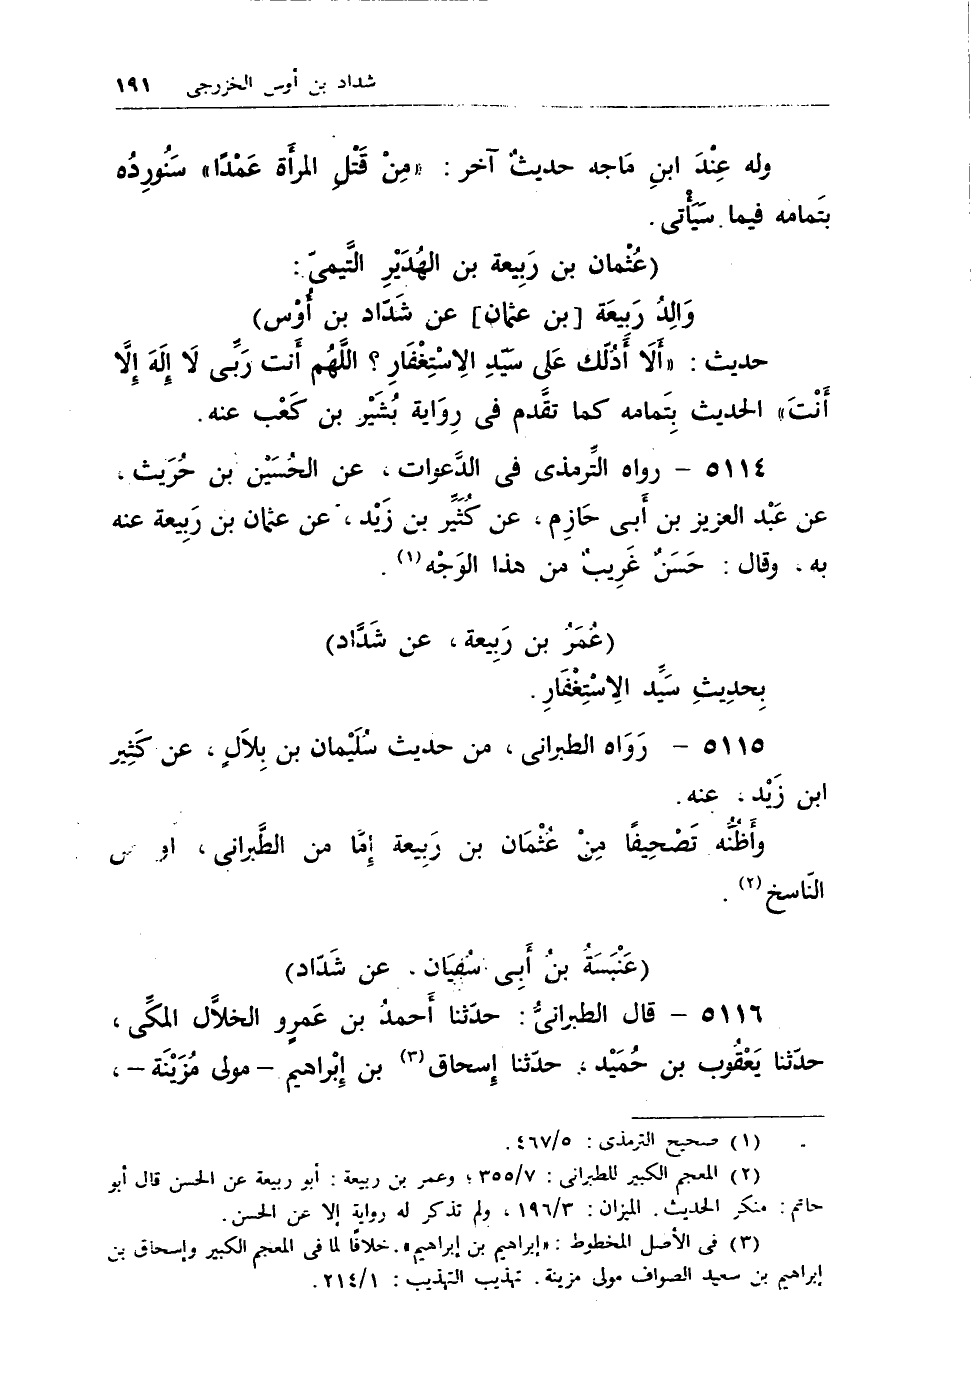 شداد بن أوس الخزرجى ١٩١
وله عِنْدَ ابنِ مَاجه حديثٌ آخر : «مِنْ قَتْلِ المرأَة عَمْدًا» سَنُورِدُه
بتَمامه فيما سَيَأْتى .
(عُثْمان بن رَبِيعة بن الهُدَيْرِ التَّيمىّ :
وَالِدُ رَبِيعَة [بن عثمان] عن شَدّاد بن أَوْس)
حديث : «أَلَا أَدُلّك عَلى سَيّدِ الاِسْتِغْفَارِ ؟ اللَّهُم أَنت رَبِّى لَا إِلَهَ إِلَّا
أَنْتَ» الحديث بِتَمامه كما تقَّدم فى رِوَاية بُشَيْر بن كَعْب عنه .
٥١١٤ – رواه التِّرمذى فى الدَّعوات ، عن الحُسَيْن بن حُرَيث ،
عن عَبْد العزيز بن أَبى حَازِم ، عن كُثَيِّر بن زَيْد ، عن عثمان بن رَبِيعة عنه
به ، وقال : حَسَنٌ غَرِيبٌ من هذا الوَجْه(١) .
(عُمَرُ بن رَبِيعة ، عن شَدَّاد)
بِحدِيثِ سَيِّد الاِسْتِغْفَارِ .
٥١١٥ – رَوَاه الطبرانى ، من حديث سُلَيْمان بن بِلاَلٍ ، عن كَثِير
ابن زَيْد ، عنه .
وأَظُنُّه تَصْحِيفًا مِنْ عُثْمَان بن رَبِيعة إِمَّا من الطَّبرانى ، أو
النّاسخ(٢) .
(عَنْبَسَةُ بنُ أَبِى سُفيَان . عن شَدّاد)
٥١١٦ – قال الطبرانىُّ : حدّثنا أَحمدُ بن عَمرٍو الخلاَّل المكِّى ،
حدّثنا يَعْقُوب بن حُمَيْد ، حدّثنا إِسحاق(٣) بن إِبْراهيم – مولى مُزَيْنَة – ،
(١) صحيح الترمذى : ٤٦٧/٥ .
(٢) المعجم الكبير للطبرانى : ٣٥٥/٧ ؛ وعمر بن ربيعة : أبو ربيعة عن الحسن قال أبو
حاتم : منكر الحديث . الميزان : ١٩٦/٣ ، ولم تذكر له رواية إلا عن الحسن .
(٣) فى الأصل المخطوط : «إبراهيم بن إبراهيم» . خلافًا لما فى المعجم الكبير وإسحاق بن
إبراهيم بن سعيد الصواف مولى مزينة . تهذيب التهذيب : ٢١٤/١ .